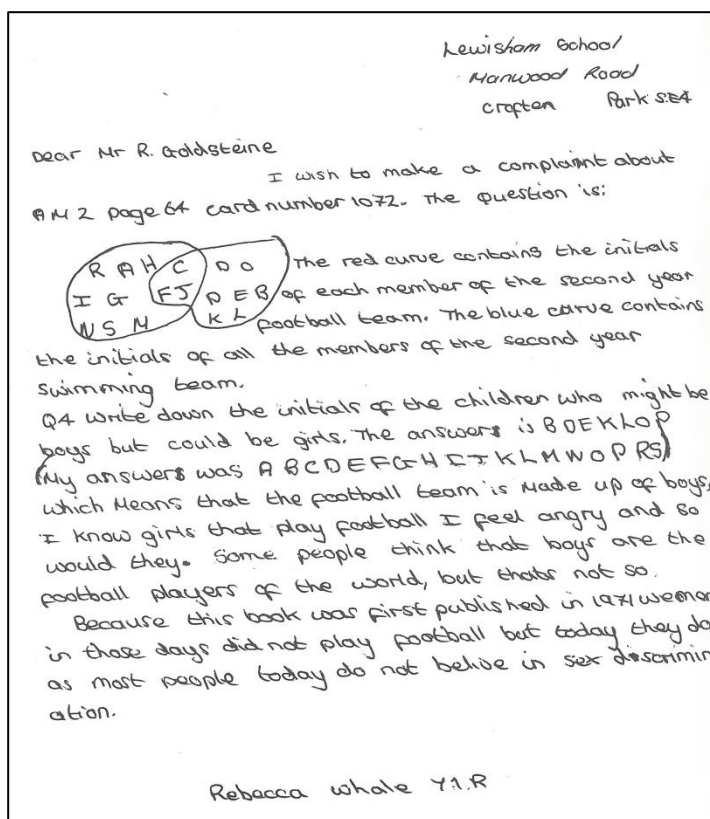 Lewisham School
Manwood Road
Crofton Park S.E4
Dear Mr R. Goldsteine
I wish to make a complaint about
A M 2 page 64 card number 1072. The question is:
R A H C D O The red curve contains the initials
I G F J P E B of each member of the second year
N S M K L football team. The blue curve contains
the initials of all the members of the second year
swimming team.
Q4 write down the initials of the children who might be
boys but could be girls. The answers is B D E K L O P
(My answers was A B C D E F G H I J K L M N O P R S)
which Means that the football team is Made up of boys,
I know girls that play football I feel angry and so
would they. Some people think that boys are the
football players of the world, but thats not so.
Because this book was first published in 1971 wemen
in those days did not play football but today they do
as most people today do not belive in sex discrimin
ation.
Rebecca whale Y.1.R